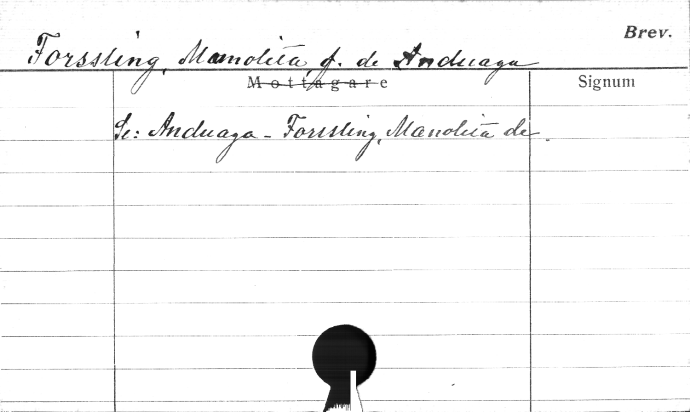 Brev.
Forssling, Manolita, f. de Anduaga
Mottagare
Signum
Se: Anduaga - Forssling, Manolita de.